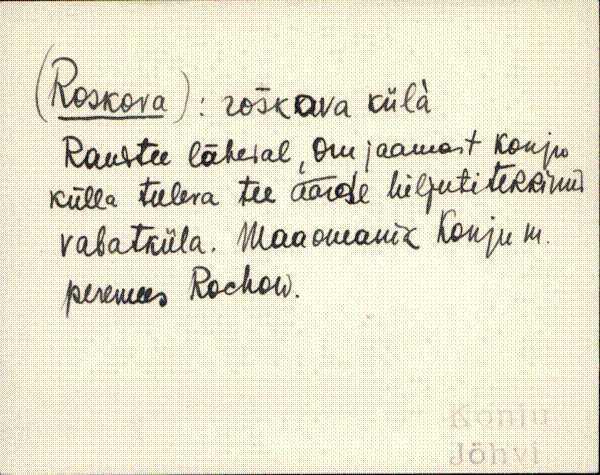 (Roskova) : roškava külà
Raudtee läheral, Oru jaamast Konju
külla tuleva tee äärde hiljuti tekkinud
vabatküla. Maaomanik Konju m.
peremees Rochow.
Konju
Jõhvi